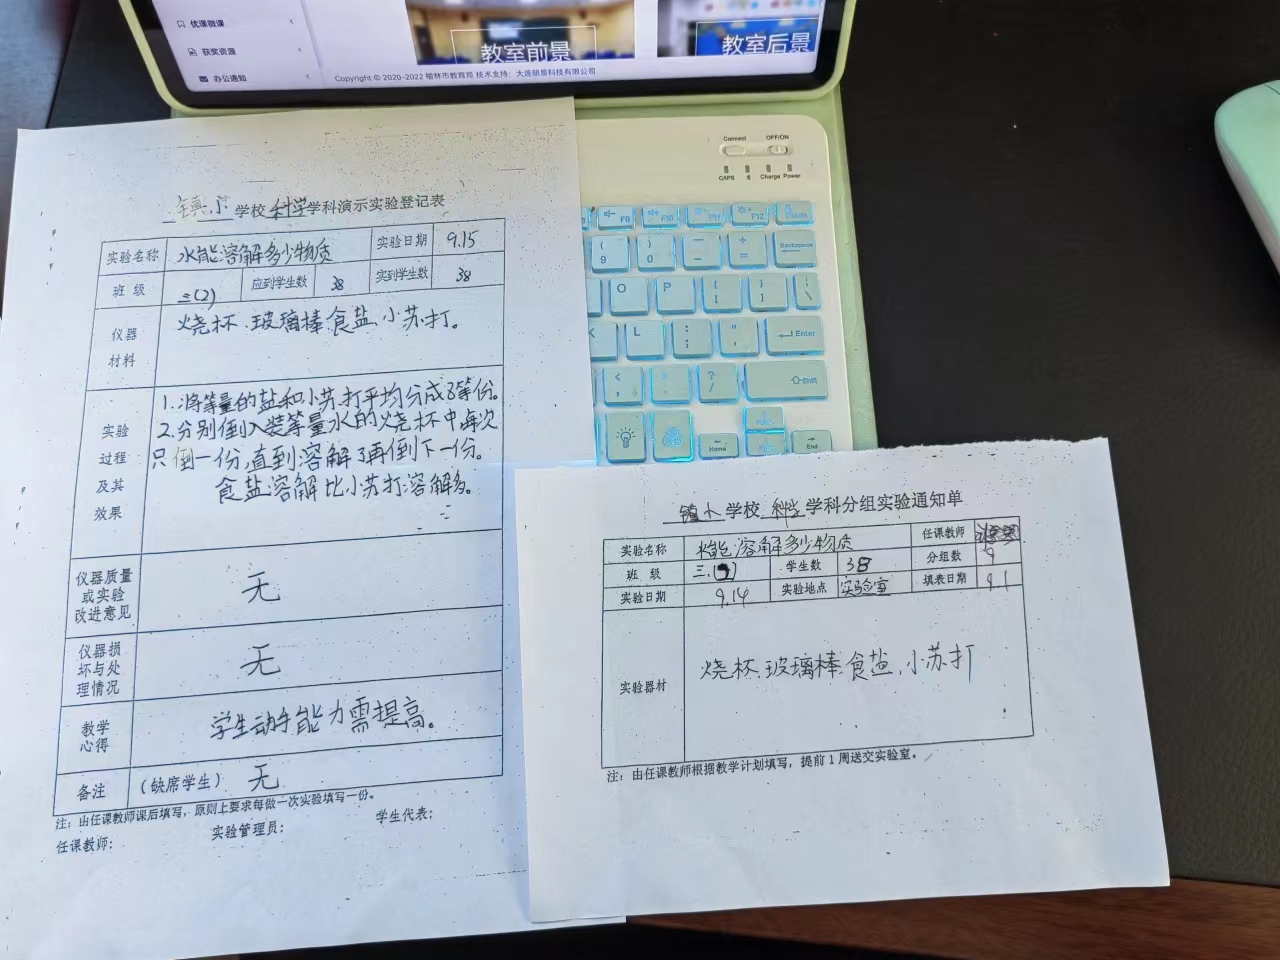 优课微课
获奖资源
办公通知
教室前景
教室后景
Copyright © 2020-2022 榆林市教育局 技术支持：大连明易科技有限公司
Connect OFF/ON
CAPS Charge Power
F9 F10 F11 F12 Delete
( 9 ) 0 — + = Backspace
O P { [ } ] | \
K L : ; " ' Enter
< , > . ? / Shift
Home End
镇小学校科学学科演示实验登记表
实验名称 水能溶解多少物质 实验日期 9.15
班 级 三(2) 应到学生数 38 实到学生数 38
仪器材料 烧杯.玻璃棒.食盐.小苏打。
实验过程及其效果
1.将等量的盐和小苏打平均分成8等份。
2.分别倒入装等量水的烧杯中每次
只倒一份,直到溶解了再倒下一份。
食盐溶解比小苏打溶解多。
仪器质量或实验改进意见 无
仪器损坏与处理情况 无
教学心得 学生动手能力需提高。
备注 (缺席学生) 无
注：由任课教师课后填写，原则上要求每做一次实验填写一份。
任课教师： 实验管理员： 学生代表：
镇小学校科学学科分组实验通知单
实验名称 水能溶解多少物质 任课教师
班 级 三.( ) 学生数 38 分组数 9
实验日期 9.14 实验地点 实验室 填表日期 9.1
实验器材 烧杯.玻璃棒.食盐.小苏打
注：由任课教师根据教学计划填写，提前1周送交实验室。